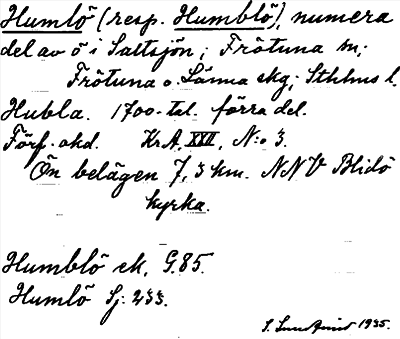 Humlö (resp. Humblö), numera
del av ö i Saltsjön; Frötuna sn;
Frötuna o. Länna skg; Sthlms l.
Hubla. 1700-tal. förra del.
Förf. okd. Kr.A. XXI, N:o 3.
Ön belägen 7,3 km. NNV Blidö
kyrka.
Humblö ek. G.85.
Humlö Sj: 233.
S. Lundqvist 1935.